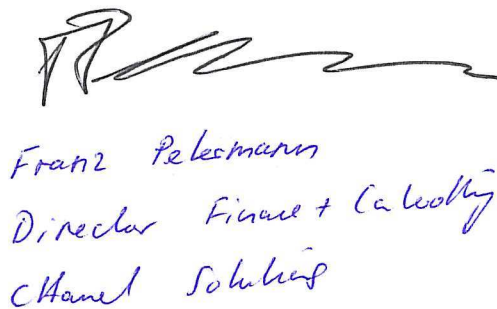 Franz Petermann
Director Finance + Controlling
Channel Solutions